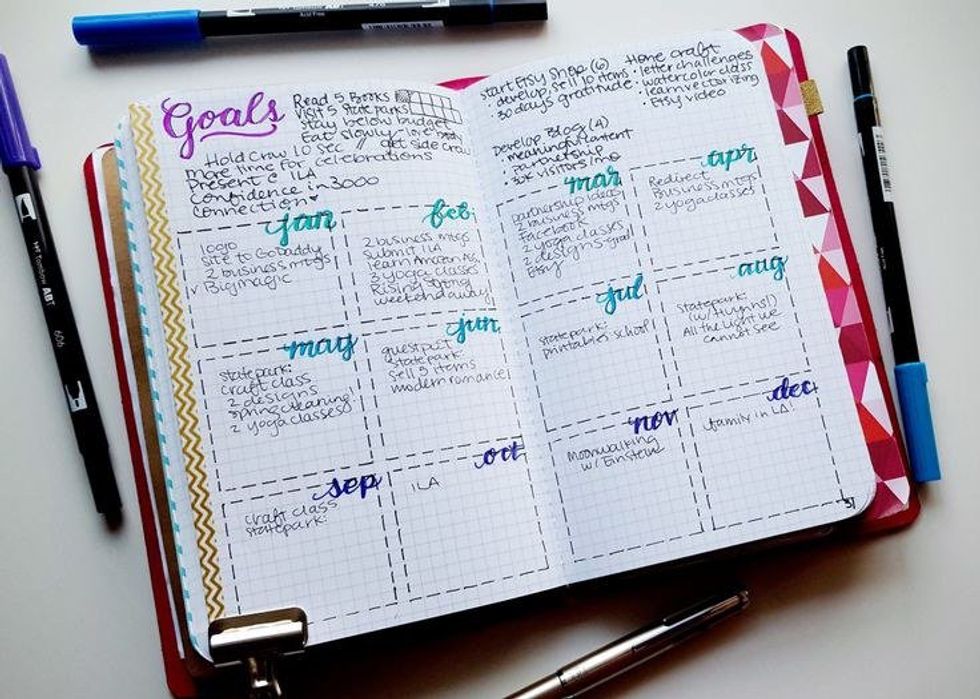 Goals
Read 5 Books
visit 5 state parks
stay below budget
Eat slowly - love body
Hold Crow 10 sec // get side crow
more time for celebrations
Present @ ILA
confidence in 3000
connection
start Etsy shop (6)
• develop, sell 10 items
• 30 days gratitude
Home craft
• letter challenges
• watercolor class
• learn vectorizing
• Etsy video
Develop Blog (4)
• meaningful content
• partnership
• 30K visitors/mo
jan
logo
site to GoDaddy
2 business mtgs
✓ Big magic
feb
2 business mtgs
submit ILA
learn Amazon
2 yoga classes
Rising strong
weekend away
mar
partnership ideas
2 business mtgs
Facebook
2 yoga classes
2 designs-goal
Etsy
apr
Redirect
Business mtgs
2 yoga classes
may
statepark:
craft class
2 designs
spring cleaning!
2 yoga classes
jun
guest post
statepark:
sell 5 items
modern romance
jul
statepark:
printables school
aug
statepark:
(w/ Huynhs!)
All the light we
cannot see
sep
craft class
statepark:
oct
ILA
nov
Moonwalking
w/ Einstein
dec
family in LA!
31
Tombow ABT
606